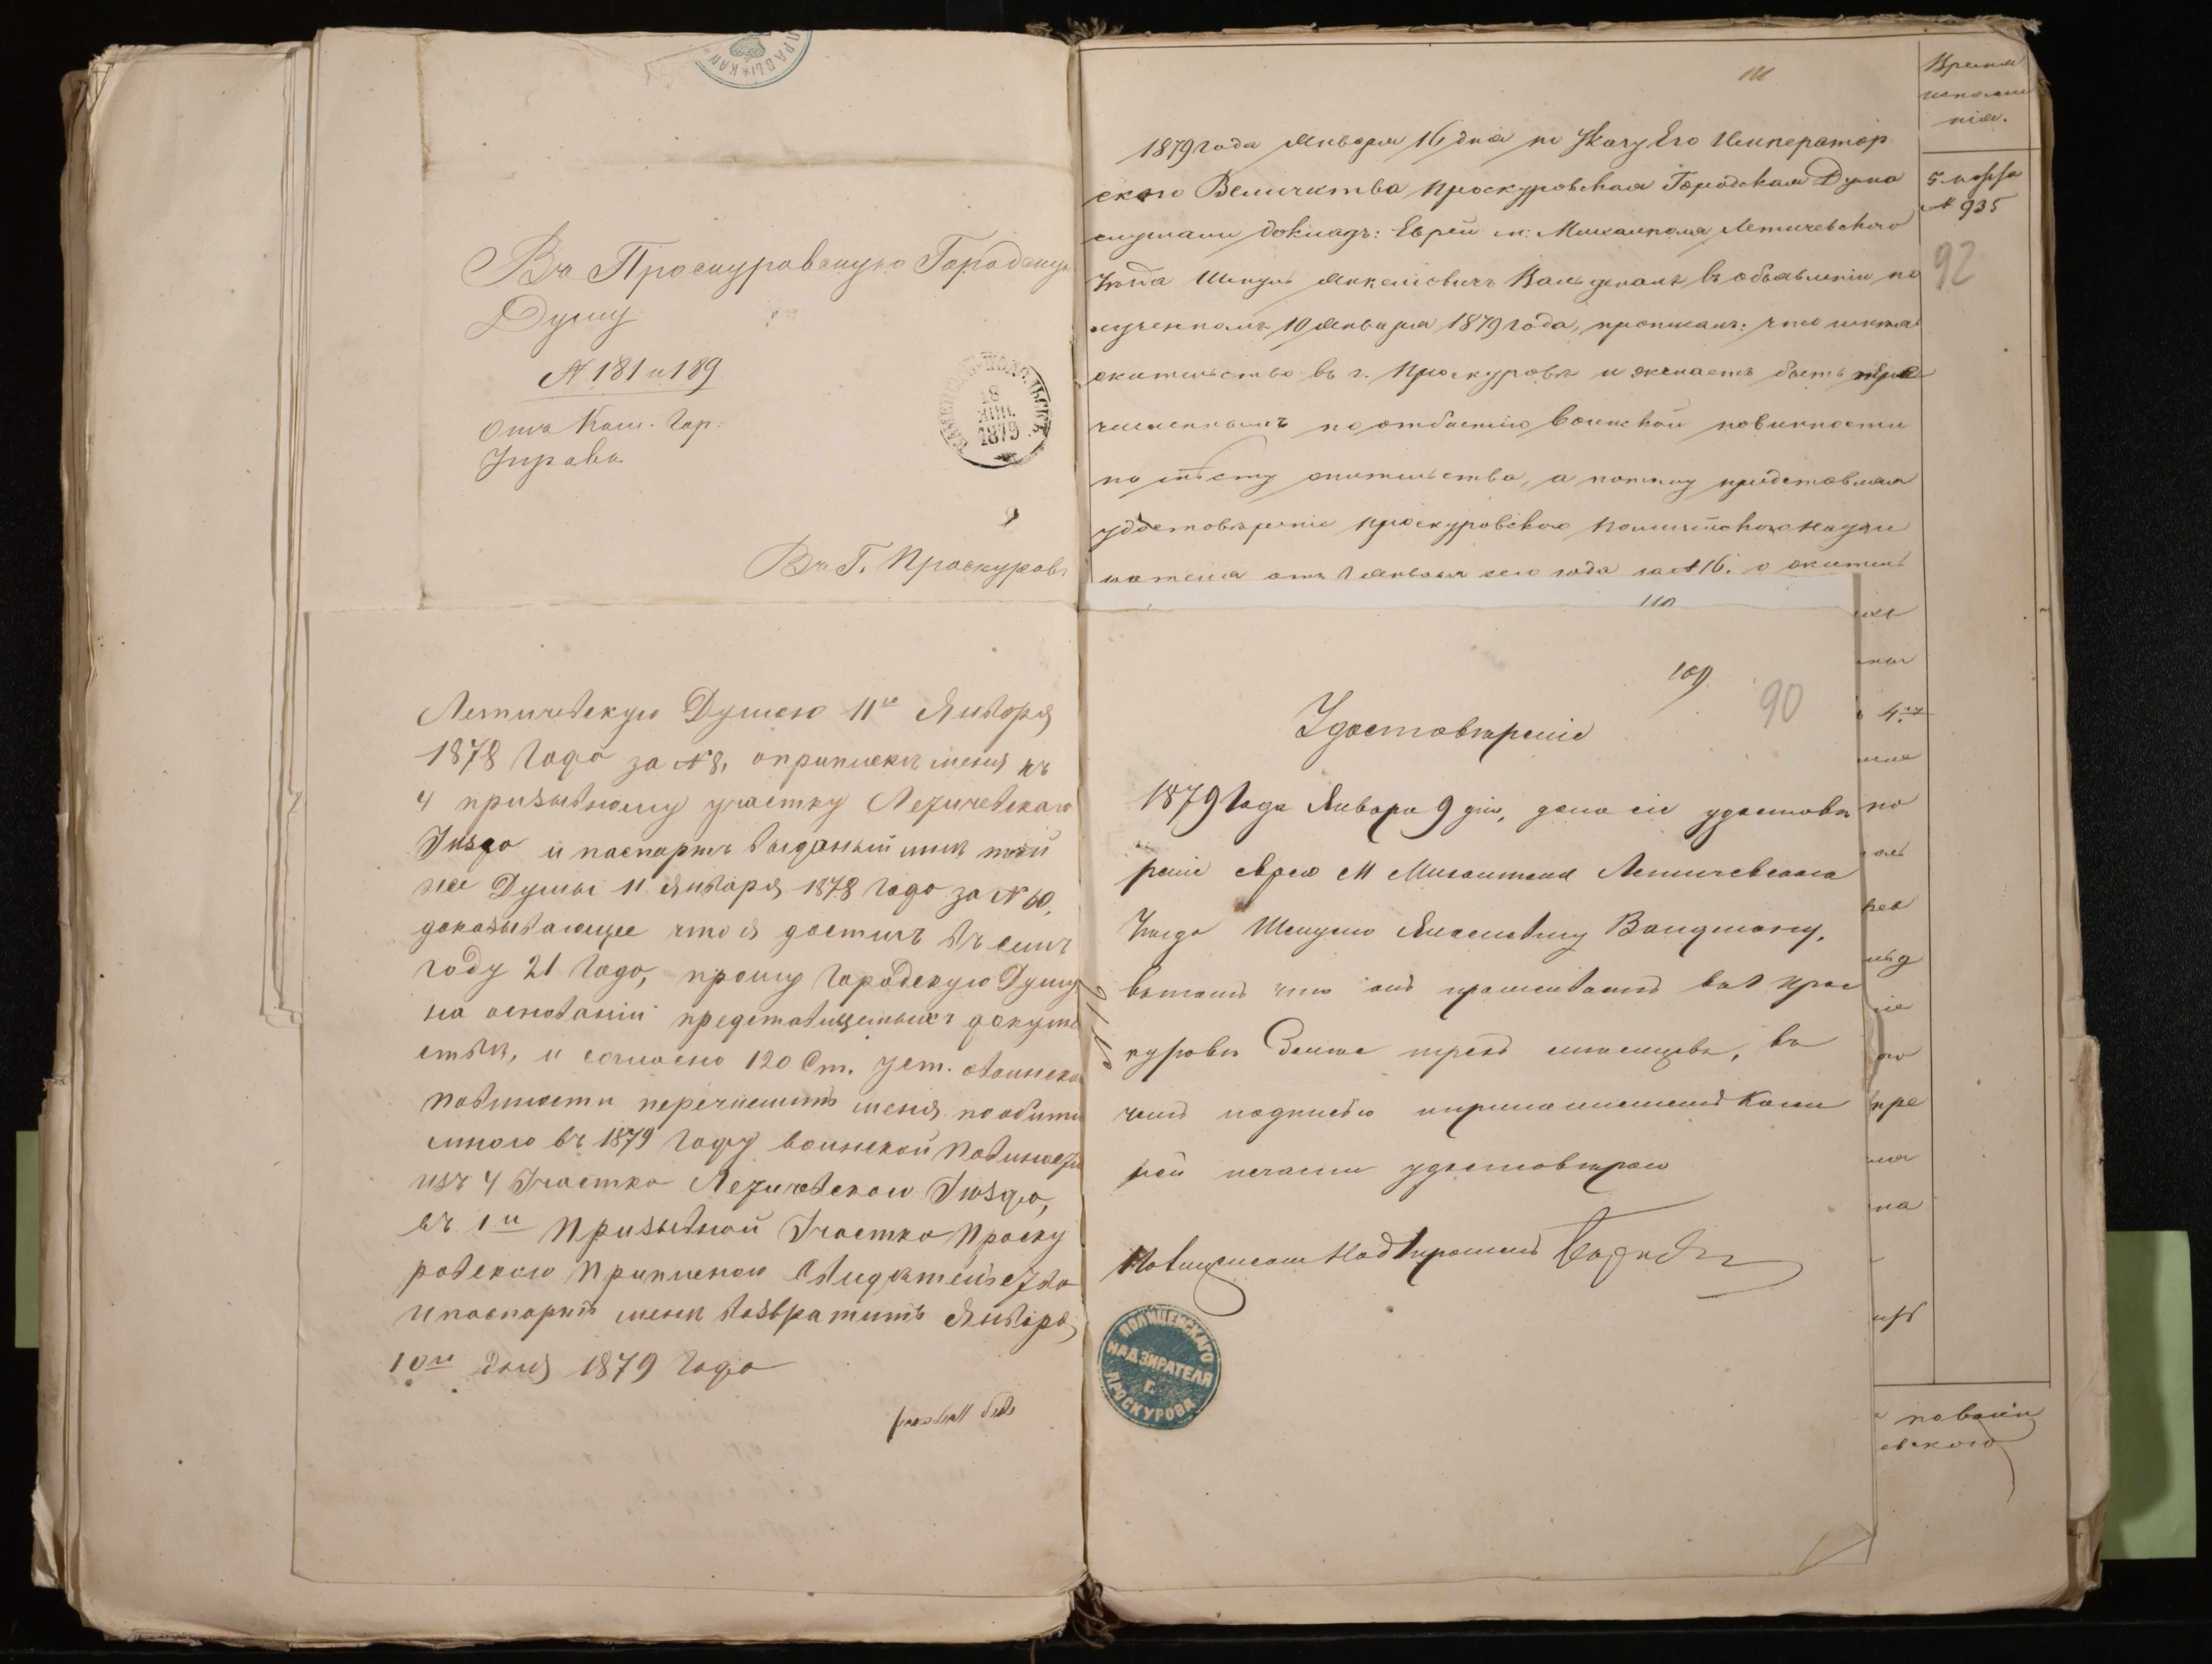 Въ Проскуровскую Городскую
Думу
№ 181 и 189
Отъ Кам. Гор.
Управы
КАМЕНЕЦЪ-ПОДОЛЬСКЪ
18
1879
Въ Г. Проскуровъ
Летичевскую Думою 11го Января
1878 года за № 8, о припискѣ меня къ
4 призывному участку Летичевскаго
Уѣзда и паспортъ выданый мнѣ той
же Думы 11 Января 1878 года за № 60,
доказывающее что я достигъ въ семъ
году 21 года, прошу Городскую Думу
на основаніи представленыхъ докуме
нтовъ, и согласно 120 Ст. Уст. о воинской
повиности перечислить меня по отбытію
мною въ 1879 году воинской повиности
изъ 4 Участка Летичевскаго Уѣзда,
въ 1й Призывной Участка Проску
ровскаго приписное свидѣтельство
и паспортъ мнѣ возвратить Января
10го дня 1879 года
111
1879 года Января 16 дня по Указу Его Император
скаго Величества Проскуровская Городская Дума
слушали докладъ: Еврей м: Михалполя Летичевскаго
Уѣзда Шмуль Янкелевичъ Вальдманъ въ объявленіи по
лученномъ 10 Января 1879 года, прописалъ: что имѣя
жительство въ г. Проскуровѣ и желаетъ быть при
численнымъ по отбытію воинской повинности
по мѣсту жительства, а потому представляя
удостовѣреніе Проскуровскаго Полицейскаго Надзи
рателя отъ 9 Января сего года за № 16. о житель
Время
исполне
нія.
5 марта
№ 935
92
110
109
90
Удостовѣреніе
1879 Года Января 9 дня, дано сіе удостовѣ
реніе еврею М Михалполя Летичевскаго
Уѣзда Шмулю Янкелевичу Вальдману,
въ томъ что онъ проживаетъ въ г Прос
куровѣ болѣе трехъ мѣсяцевъ, въ
чемъ подписью и приложеніемъ казен
ной печати удостовѣряю
Полицейскій Надзиратель
ПОЛИЦЕЙСКАГО
НАДЗИРАТЕЛЯ
Г.
ПРОСКУРОВА
4му
по
пре
на